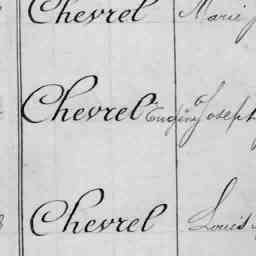 Chevrel Marie
Chevrel Eugène Joseph
Chevrel Louis